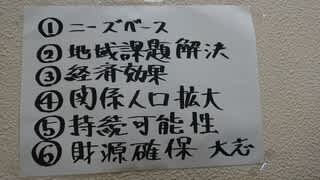 ① ニーズベース
② 地域課題解決
③ 経済効果
④ 関係人口拡大
⑤ 持続可能性
⑥ 財源確保 大志